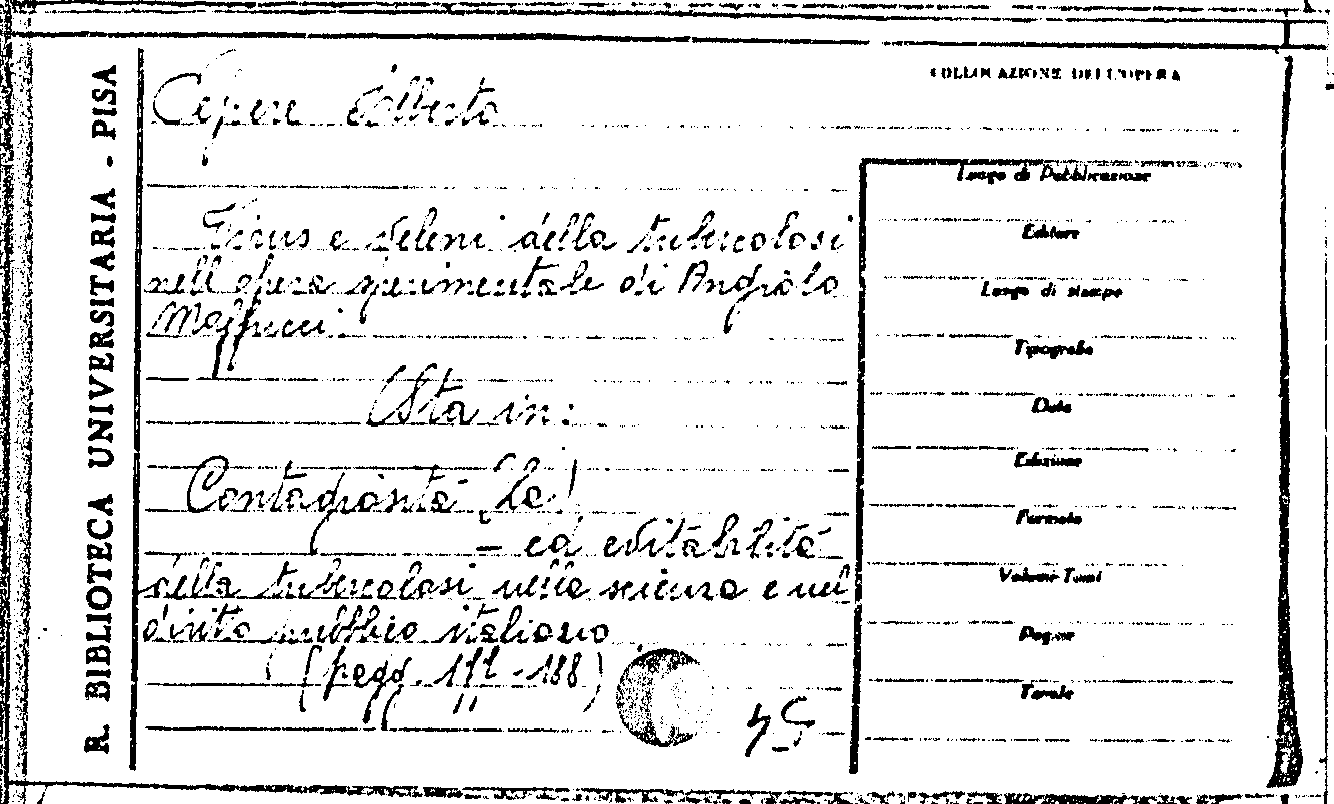 R. BIBLIOTECA UNIVERSITARIA - PISA
COLLOCAZIONE DELL'OPERA
Cepere Alberto
Virus e veleni della tubercolosi
nell'opera sperimentale di Angiolo
Maffucci.
(Sta in:
Contagiosità (La)
- ed evitabilità
della tubercolosi nella scienza e nel
diritto pubblico italiano
(pagg. -188)
Luogo di Pubblicazione
Editore
Luogo di stampa
Tipografo
Data
Edizione
Formato
Volumi Tomi
Pagine
Tavole